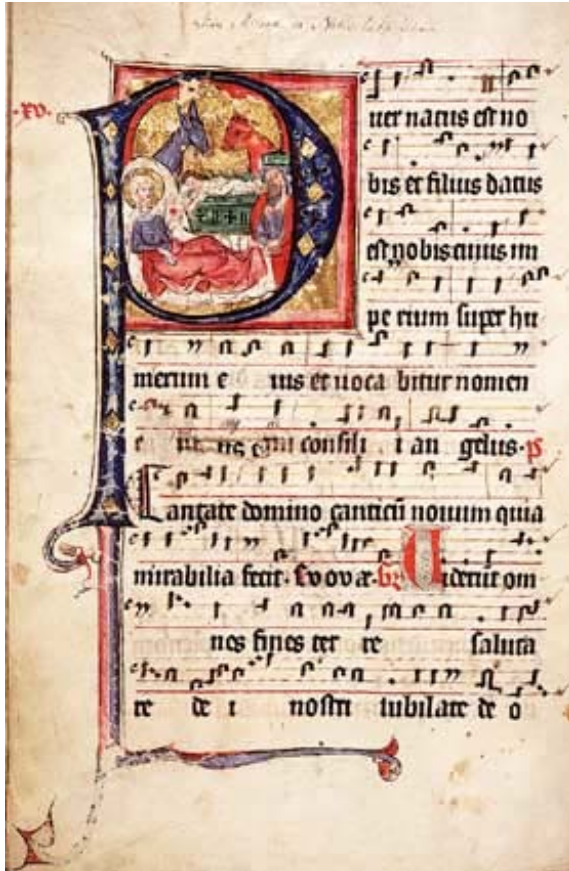 ·xv·
Puer natus est no
bis et filius datus
est nobis cuius im
pe rium super hu
merum e ius et uoca bitur nomen
e ius consili i an gelus· ps
Cantate domino canticū nouum quia
mirabilia fecit· Euouæ· Viderūt om
nes fines ter re saluta
re de i nostri iubilate de o